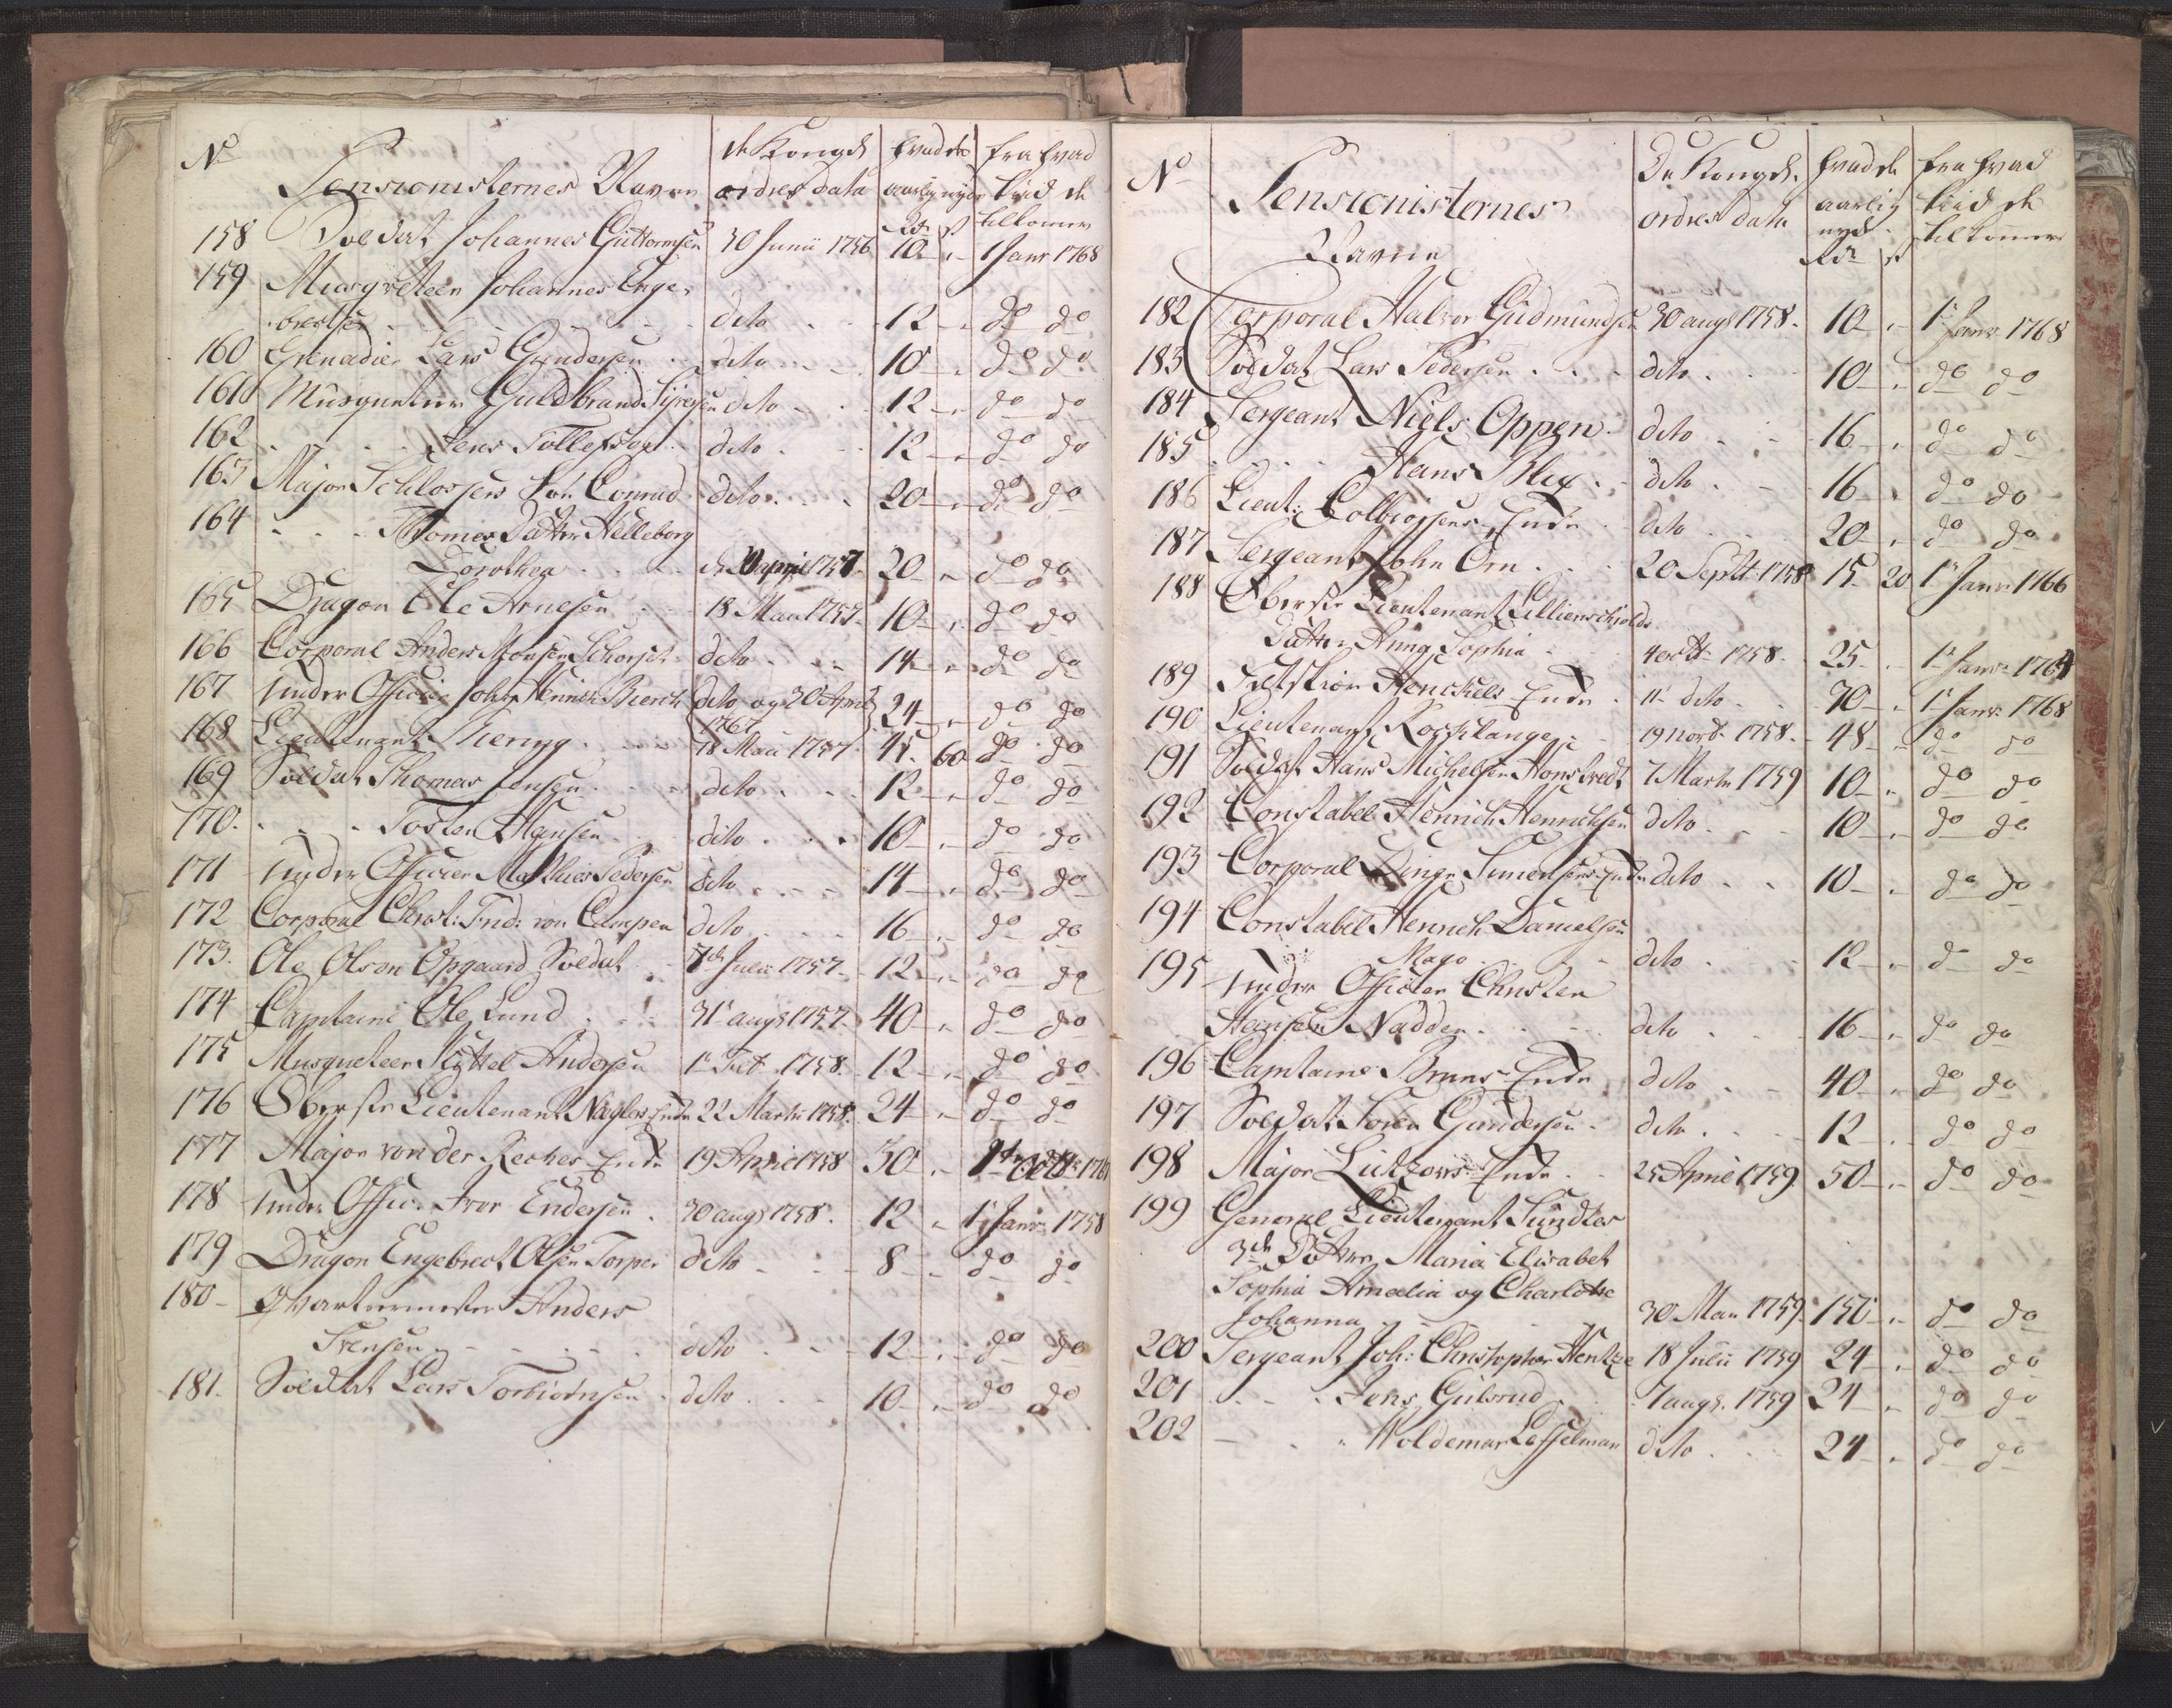 No
Pensionisternes Navne
de Kongl.
ordres data
hvad de
aarlig nyde
Rdr ß
fra hvad
tiid de
tilkommer
158 Soldat Johannes Guttormsen 30 Junii 1756 10 „ 1 Janr 1768
159 Musqveteer Johannes Enge-
brectsen dito 12 „ do do
160 Grenadier Lars Gundersen dito 10 „ do do
161 Musqueteer Guldbrand Syversen dito 12 „ do do
162 Jens Tollefsen dito 12 „ do do
163 Major Schlossers Søn Conrad dito 20 „ do do
164 Thomes Datter Helleborg
Dorothea d. 20 april 1757 20 „ do do
165 Dragon Ole Arnesen 18 Maii 1757 10 „ do do
166 Corporal Anders Monsen dito 14 „ do do
167 Under Officier John Henrich Bierch dito og 30 April
1767 24 „ do do
168 Lieutenant Thering 18 Maii 1757 45 60 do do
169 Soldat Thomas Jensen dito 12 „ do do
170 Tosten Hansen dito 10 „ do do
171 Under Officier Mathias Pedersen dito 14 „ do do
172 Corporal Christ: Frid: von Campen dito 16 „ do do
173. Ole Olsen Opgaard Soldat 7de Julii 1757 12 „ do do
174 Capitaine Ole Lund 31 augs 1757 40 „ do do
175 Musqueteer Kittel Andersen 1 Feb 1758 12 „ do do
176 Oberste Lieutenant Naglers Enke 22 Martii 1758 24 „ do do
177 Major von der Reckes Enke 19 April 1758 30 „ 1ste Octbr
178 Under Offic. Iver Endersen 30 augs 1758 12 „ 1 Janr 1758
179 Dragon Engebrect Olsen Torper dito 8 „ do do
180 Qvarteermester Anders
Svensen dito 12 „ do do
181. Soldat Lars Torbiörnsen dito 10 „ do do
No
Pensionisternes
Navne
De Kongl.
ordres data
hvad de
aarlig
nyde
Rdr ß
fra hvad
tiid de
tilkommer
182 Corporal Halvor Gudmundsen 30 augs 1758 10 „ 1 Janr 1768
183 Soldat Lars Pedersen dito 10 „ do do
184 Sergeant Niels Oppen dito 16 „ do do
185 Hans Blix dito 16 „ do do
186 Lieut: Colbiørsens Enke dito 20 „ do do
187 Sergeant John Orn 20 Septbr 1758 15 20 1 Janr 1766
188 Oberste Lieutenant Lillienschiolds
Datter Anna Sophia 4 octbr 1758 25 „ 1 Janr 1764
189 Feltskiær Henckels Enke 11 dito 70 „ 1 Janr 1768
190 Lieutenant 19 novbr 1758 48 „ do do
191 Soldat Hans Michelsen Honstvedt 7 Martii 1759 10 „ do do
192 Constabel Henrich Henrichsen dito 10 „ do do
193 Corporal Simensens Enke dito 10 „ do do
194 Constabel Henrich Danielsen
Mago dito 12 „ do do
195 Under Officier Christen
Hansen Nadden dito 16 „ do do
196 Capitaine Bruns Enke dito 40 „ do do
197 Soldat Søren Gundersen dito 12 „ do do
198 Major Lützows Enke 25 April 1759 50 „ do do
199 General Lieutenant Sundtes
3de Døttre Maria Elisabet
Sophia Amalia og Charlotte
Johanna 30 Maii 1759 150 „ do do
200 Sergeant Joh: Christopher Hentze 18 Julii 1759 24 „ do do
201 Jens Gulsrud 7 augs. 1759 24 „ do do
202 Woldemar Lesselman dito 24 „ do do